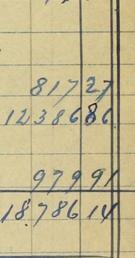 81727
1238686
97991
1878614